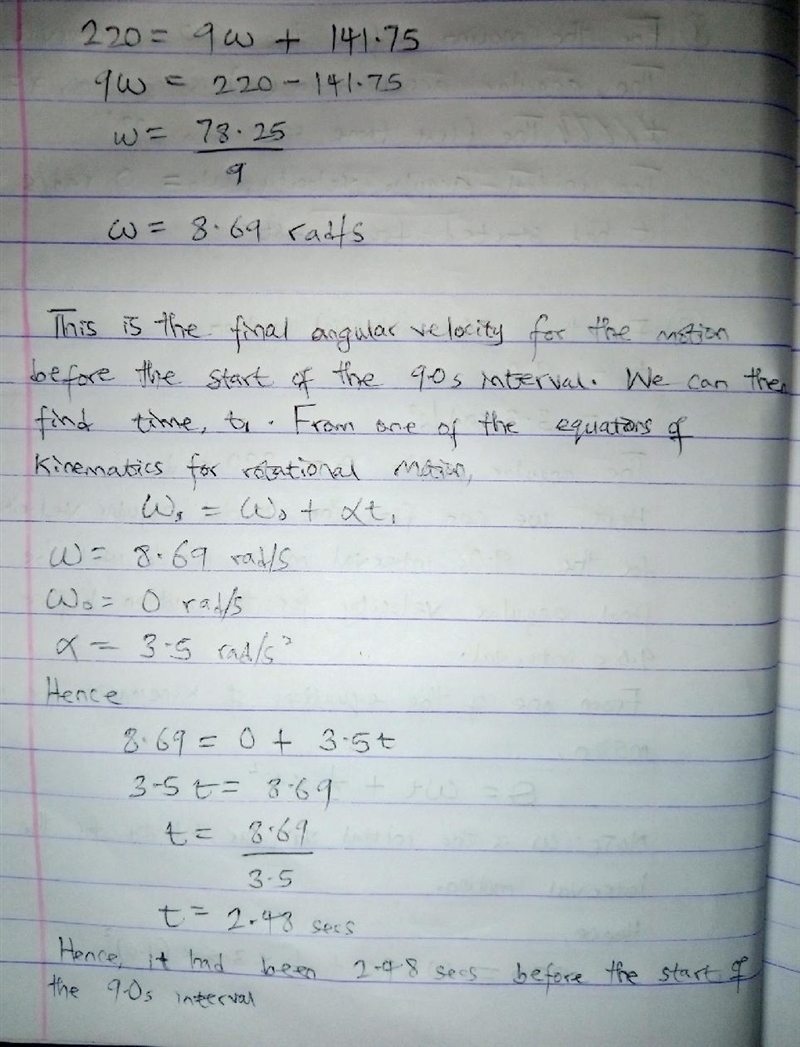 220 = 9ω + 141.75
9ω = 220 - 141.75
ω = 78.25
9
ω = 8.69 rad/s
This is the final angular velocity for the motion
before the start of the 9.0s interval. We can then
find time, t₁. From one of the equations of
Kinematics for rotational motion,
ω₁ = ω₀ + αt₁
ω = 8.69 rad/s
ω₀ = 0 rad/s
α = 3.5 rad/s²
Hence
8.69 = 0 + 3.5t
3.5t = 8.69
t = 8.69
3.5
t = 2.48 secs
Hence, it had been 2.48 secs before the start of
the 9.0s interval